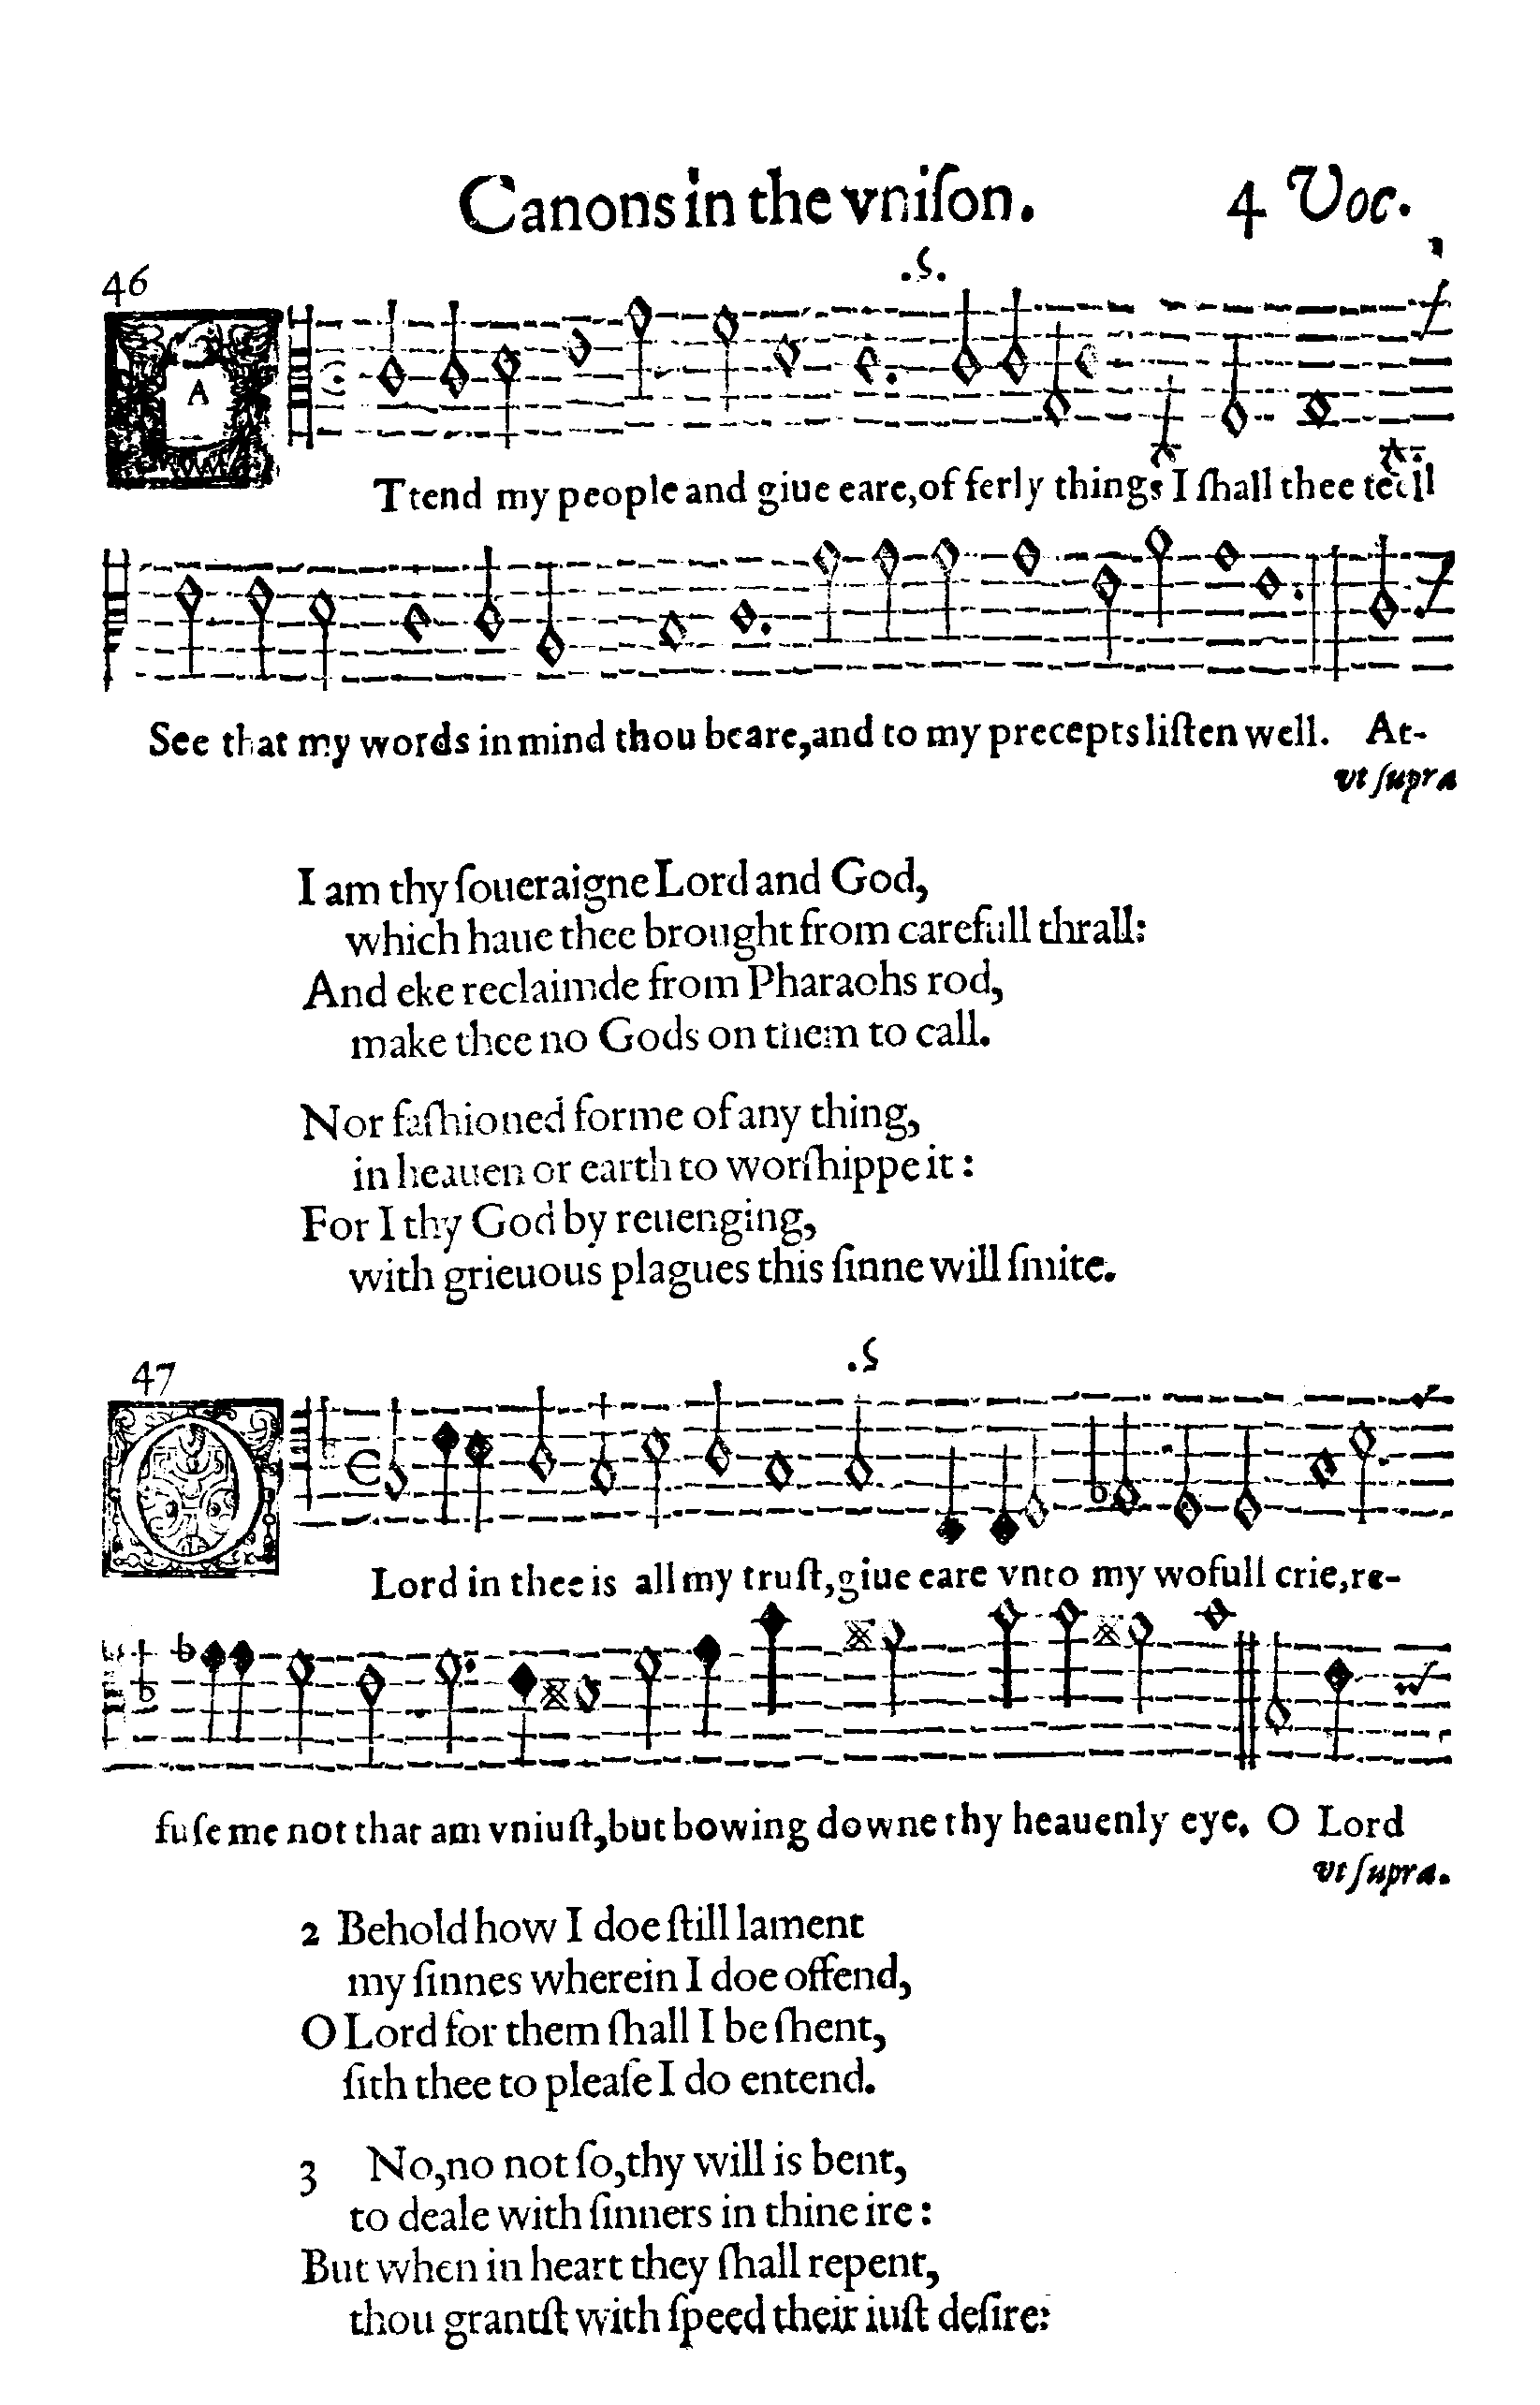 Canons in the vniſon. 4 Voc.
.S.
46
A
Ttend my people and giue eare,of ferly things I ſhall thee tell
See that my words in mind thou beare,and to my precepts liſten well. At-
vt ſupra
I am thy ſoueraigne Lord and God,
which haue thee brought from carefull thrall:
And eke reclaimde from Pharaohs rod,
make thee no Gods on them to call.
Nor faſhioned forme of any thing,
in heauen or earth to worſhippe it :
For I thy God by reuenging,
with grieuous plagues this ſinne will ſmite.
.S
47
O
Lord in thee is all my truſt,giue eare vnto my wofull crie,re-
fuſe me not that am vniuſt,but bowing downe thy heauenly eye. O Lord
vt ſupra.
2 Behold how I doe ſtill lament
my ſinnes wherein I doe offend,
O Lord for them ſhall I be ſhent,
ſith thee to pleaſe I do entend.
3 No,no not ſo,thy will is bent,
to deale with ſinners in thine ire :
But when in heart they ſhall repent,
thou grantſt with ſpeed their iuſt deſire: